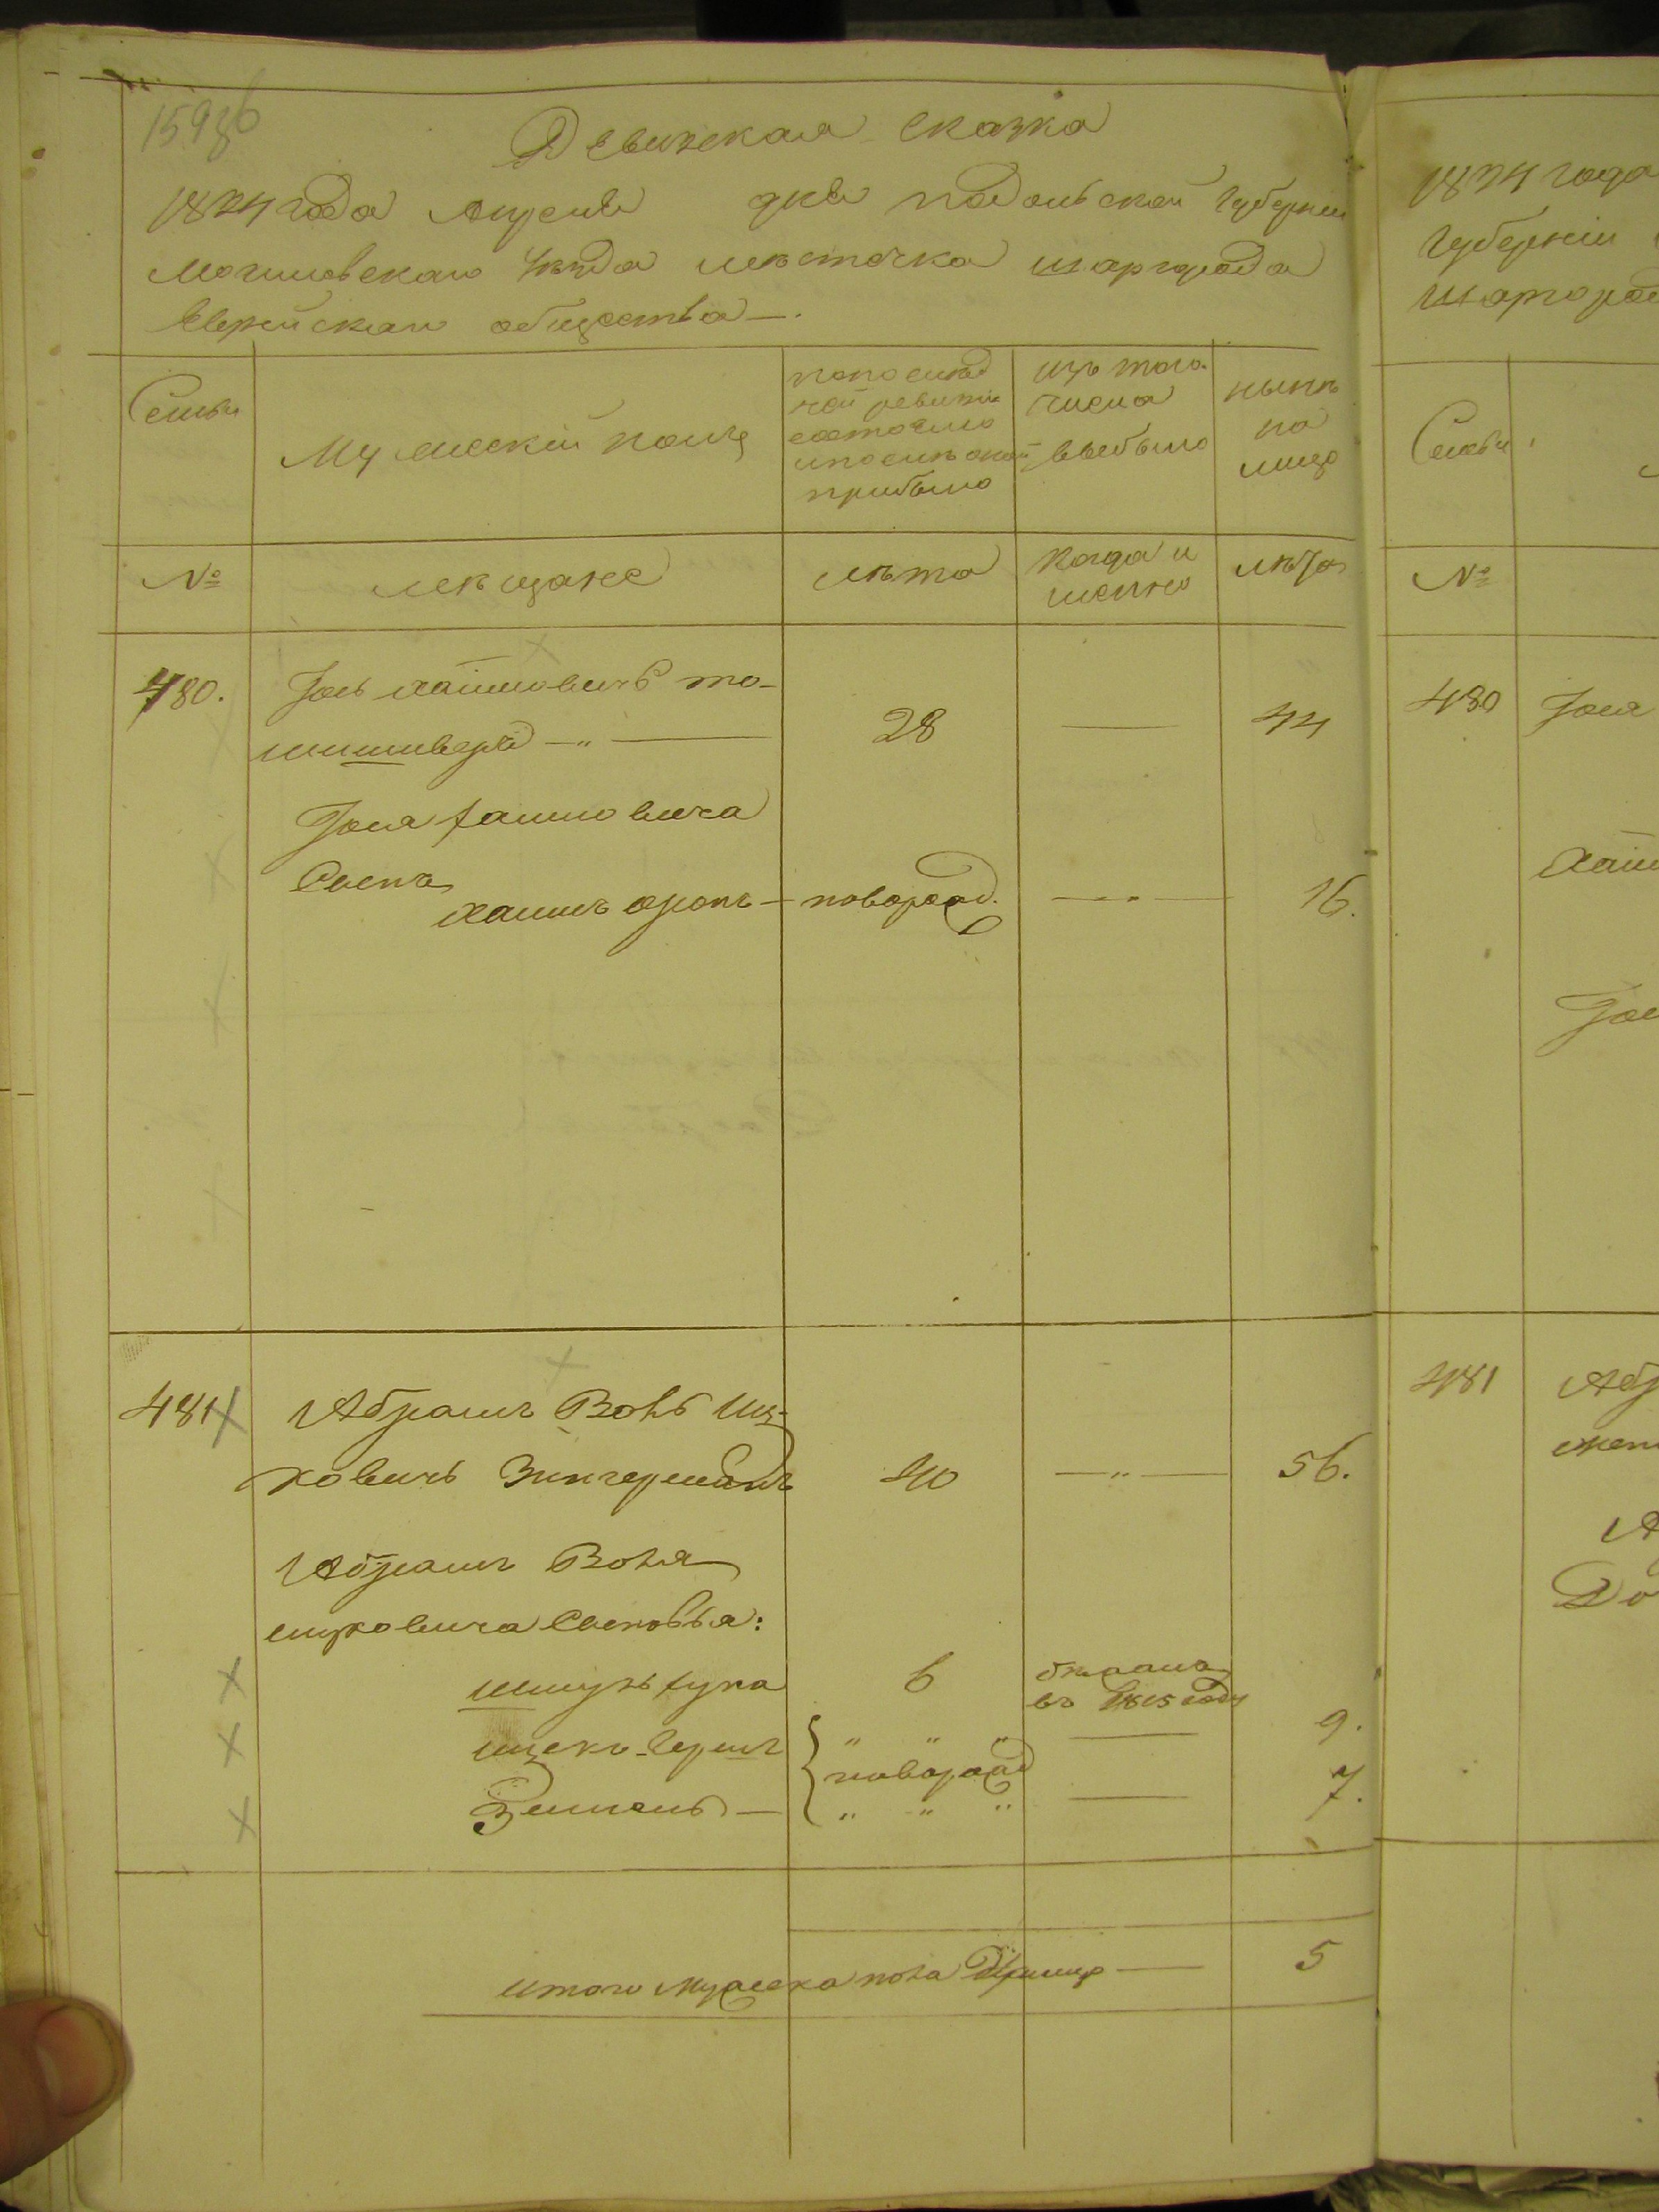 Ревижская сказка
1834 года Апреля дня Подольской Губернии
Могилевскаго Уезда местечка Шаргорода
Еврейскаго общества —.
Семьи
Мужеский полъ
по послед
ней ревизии
состояло
и после оной
прибыло
изъ того
числа
выбыло
ныне
на
лицо
№
мещане
лета
когда и
именно
лета
480.
Іось Хаимовичъ
28
—
44
Іося Хаимовича
Сынъ
Хаимъ Аронъ — новорожд.
— " —
16.
481
Абрамъ Воль Иц-
ковичъ Зингерманъ
40
— " —
56.
Абрамъ Воля
Ицковича Сыновья:
Шмуль
6
въ 1815 году
Ицекъ Гершъ
" " "
—
9.
новорожд
Зельманъ —
" " "
—
7.
Итого Мужеска пола
—
5
1834 года
Губерніи
Шаргород
Семьи
№
480
Іося
Хаим
Іос
481
Абр
жен
А
До